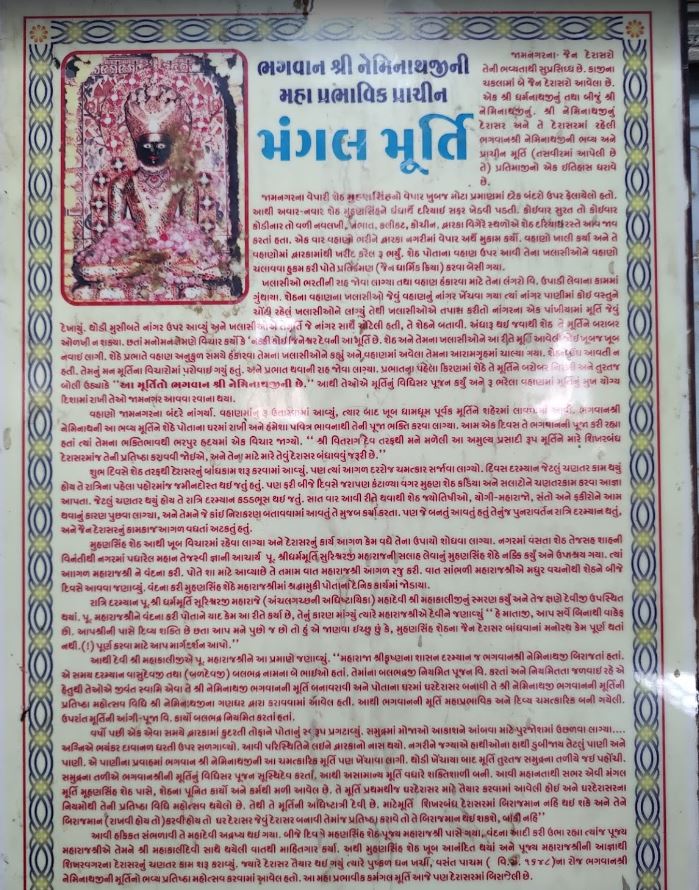 ભગવાન શ્રી નેમિનાથજીની
મહા પ્રભાવિક પ્રાચીન
મંગલ મૂર્તિ
જામનગરના જૈન દેરાસરો
તેની ભવ્યતાથી સુપ્રસિધ્ધ છે. કાજીના
ચકલામાં બે જૈન દેરાસરો આવેલા છે.
એક શ્રી ધર્મનાથજીનું તથા બીજું શ્રી
નેમિનાથજીનું. શ્રી નેમિનાથજીનું
દેરાસર અને તે દેરાસરમાં રહેલી
ભગવાનશ્રી નેમિનાથજીની ભવ્ય અને
પ્રાચીન મૂર્તિ (તસવીરમાં આપેલી છે
તે) પ્રતિમાજીનો એક ઈતિહાસ ધરાવે
છે.
જામનગરના વેપારી શેઠ મુહણસિંહનો વેપાર ખુબજ મોટા પ્રમાણમાં દરેક બંદરો ઉપર ફેલાયેલો હતો.
આથી અવાર-નવાર શેઠ મુહણસિંહને ધંધાર્થે દરિયાઈ સફર ખેડવી પડતી. કોઈવાર સુરત તો કોઈવાર
કોડીનાર તો વળી નવલખી, ખંભાત, કલીકટ, કોચીન, દ્વારકા વિગેરે સ્થળોએ શેઠ દરિયાઈરસ્તે આવ જાવ
કરતાં હતા. એક વાર વહાણો ભરીને દ્વારકા નગરીમાં વેપાર અર્થે મુકામ કર્યો. વહાણો ખાલી કર્યા અને તે
વહાણોમાં દ્વારકામાંથી ખરીદ કરેલ રૂ ભર્યું. શેઠ પોતાના વહાણ ઉપર આવી તેના ખલાસીઓને વહાણો
ચલાવવા હુકમ કરી પોતે પ્રતિક્રમણ (જૈન ધાર્મિક ક્રિયા) કરવા બેસી ગયા.
ખલાસીઓ ભરતીની રાહ જોવા લાગ્યા તથા વહાણ હંકારવા માટે તેના લંગરો વિ. ઉપાડી લેવાના કામમાં
ગુંથાયા. શેઠના વહાણના ખલાસીઓ જેવું વહાણનું નાંગર ખેંચવા ગયા ત્યાં નાંગર પાણીમાં કોઈ વસ્તુને
ચોંટી રહેલું ખલાસીઓને લાગ્યું તેથી ખલાસીઓએ તપાશ કરીતો નાંગરના એક પાંખીયામાં મૂર્તિ જેવું
દેખાયું. થોડી મુસીબતે નાંગર ઉપર આવ્યું અને ખલાસીઓએ મૂર્તિ જે નાંગર સાથે ચોટેલી હતી, તે શેઠને બતાવી. અંધારૂ થઈ જવાથી શેઠ તે મૂર્તિને બરાબર
ઓળખી ન શક્યા. છતાં મનોમન તેમણે વિચાર કર્યો કે 'નક્કી કોઈ જિનેશ્વર દેવની આ મૂર્તિ છે. શેઠ અને તેમના ખલાસીઓને આ રીતે મૂર્તિ આવેલી જોઈ ખૂબજ ખૂબ
નવાઈ લાગી. શેઠે પ્રભાતે વહાણ અનુકુળ સમયે હંકારવા તેમના ખલાસીઓને કહ્યું અને વહાણમાં આવેલા તેમના આરામગૃહમાં ચાલ્યા ગયા. શેઠને ઊંઘ આવતી ન
હતી. તેમનું મન મૂર્તિના વિચારોમાં પરોવાઈ ગયું હતું. અને પ્રભાત થવાની રાહ જોવા લાગ્યા. પ્રભાતના પહેલા કિરણમાં શેઠે તે મૂર્તિને બરોબર નિરખી અને તુરતજ
બોલી ઉઠ્યાકે "આ મૂર્તિતો ભગવાન શ્રી નેમિનાથજીની છે." આથી તેઓએ મૂર્તિનું વિધિસર પૂજન કર્યું અને રૂ ભરેલા વહાણમાં મૂર્તિનું મુખ યોગ્ય
દિશામાં રાખી તેઓ જામનગર આવવા રવાના થયા.
વહાણો જામનગરના બંદરે નાંગર્યા. વહાણમાંનું રૂ ઉતારવામાં આવ્યું, ત્યાર બાદ ખૂબ ધામધૂમ પૂર્વક મૂર્તિને શહેરમાં લાવવામાં આવી. ભગવાનશ્રી
નેમિનાથની આ ભવ્ય મૂર્તિને શેઠે પોતાના ઘરમાં રાખી અને હંમેશા પવિત્ર ભાવનાથી તેની પૂજા ભક્તિ કરવા લાગ્યા. આમ એક દિવસ તે ભગવાનની પૂજા કરી રહ્યા
હતાં ત્યાં તેમના ભક્તિભાવથી ભરપુર હૃદયમાં એક વિચાર જાગ્યો. " શ્રી વિતરાગ દેવ તરફથી મને મળેલી આ અમુલ્ય પ્રસાદી રૂપ મૂર્તિને મારે શિખરબંધ
દેરાસરમાંજ તેની પ્રતિષ્ઠા કરાવવી જોઈએ, અને તેનું માટે મારે તેવું દેરાસર બંધાવવું જરૂરી છે."
શુભ દિવસે શેઠ તરફથી દેરાસરનું બાંધકામ શરૂ કરવામાં આવ્યું. પણ ત્યાં આગળ દરરોજ ચમત્કાર સર્જાવા લાગ્યો. દિવસ દરમ્યાન જેટલું ચણતર કામ થયું
હોય તે રાત્રિના પહેલા પહોરમાંજ જમીનદોસ્ત થઈ જતું હતું. પણ ફરી બીજે દિવસે જરાપણ કંટાળ્યા વગર મુહણ શેઠ કડિયા અને સલાટોને ચણતરકામ કરવા આજ્ઞા
આપતા. જેટલું ચણતર થયું હોય તે રાત્રિ દરમ્યાન કડડભૂસ થઈ જતું. સાત વાર આવી રીતે થવાથી શેઠ જ્યોતિષીઓ, યોગી-મહારાજો, સંતો અને ફકીરોને આમ
થવાનું કારણ પુછવા લાગ્યા, અને તેમને જે કાંઈ નિરાકરણ બતાવવામાં આવતું તે મુજબ કર્યા કરતા. પણ જે બનતું આવતું હતું તેનું જ પુનરાવર્તન રાત્રિ દરમ્યાન થતું,
અને જૈન દેરાસરનું કામકાજ આગળ વધતાં અટકતું હતું.
મુહણસિંહ શેઠ આથી ખૂબ વિચારમાં રહેવા લાગ્યા અને દેરાસરનું કાર્ય આગળ કેમ વધે તેના ઉપાયો શોધવા લાગ્યા. નગરમાં વસતા શેઠ તેજસી શાહની
વિનંતીથી નગરમાં પધારેલ મહાન તેજસ્વી જ્ઞાની આચાર્ય પૂ. શ્રીધર્મમૂર્તિસૂરિશ્વરજી મહારાજની સલાહ લેવાનું મુહણસિંહ શેઠે નક્કિ કર્યું અને ઉપાશ્રય ગયા. ત્યાં
આગળ મહારાજશ્રી ને વંદના કરી. પોતે શા માટે આવ્યાછે તે તમામ વાત મહારાજશ્રી આગળ રજુ કરી. વાત સાંભળી મહારાજશ્રીએ મધુર વચનોથી શેઠને બીજે
દિવસે આવવા જણાવ્યું. વંદના કરી મુહણસિંહ શેઠે મહારાજશ્રીમાં શ્રદ્ધામુકી પોતાનાં દૈનિક કાર્યમાં જોડાયા.
રાત્રિ દરમ્યાન પૂ.શ્રી ધર્મમૂર્તિ સૂરિશ્વરજી મહારાજે (અંચલગચ્છની અધિષ્ઠાયિકા) મહાદેવી શ્રી મહાકાલીજીનું સ્મરણ કર્યું અને તેજ ક્ષણે દેવીજી ઉપસ્થિત
થયાં. પૂ. મહારાજશ્રીને વંદના કરી પોતાને યાદ કેમ આ રીતે કર્યા છે, તેનું કારણ માંગ્યું ત્યારે મહારાજશ્રીએ દેવીને જણાવ્યું " હે માતાજી, આપ સર્વે બિનાથી વાકેફ
છો. આપશ્રીની પાસે દિવ્ય શક્તિ છે છતા આપ મને પુછો જ છો તો હું એ જાણવા ઈચ્છુ છું કે, મુહણસિંહ શેઠના જૈન દેરાસર બાંધવાનાં મનોરથ કેમ પૂર્ણ થતાં
નથી.(!) પૂર્ણ કરવા માટે આપ માર્ગદર્શન આપો."
આથી દેવી શ્રી મહાકાલીજીએ પૂ. મહારાજશ્રીને આ પ્રમાણે જણાવ્યું. "મહારાજા શ્રીકૃષ્ણના શાસન દરમ્યાન જ ભગવાનશ્રી નેમિનાથજી બિરાજતાં હતાં.
એ સમય દરમ્યાન વાસુદેવજી તથા (બળદેવજી) બલભદ્ર નામના બે ભાઈઓ હતાં. તેમાંના બલભદ્રજી નિયમિત પૂજન વિ. કરતાં અને નિયમિતતા જળવાઈ રહે એ
હેતુથી તેઓએ જીવંત સ્વામિ એવા તે શ્રી નેમિનાથજી ભગવાનની મૂર્તિ બનાવરાવી અને પોતાના ઘરમાં ઘરદેરાસર બનાવી તે શ્રી નેમિનાથજી ભગવાનની મૂર્તિની
પ્રતિષ્ઠા મહોત્સવ વિધિ શ્રી નેમિનાથજીના ગણધર દ્વારા કરાવવામાં આવેલ હતી. આથી ભગવાનની મૂર્તિ મહાપ્રભાવિક અને દિવ્ય ચમત્કારિક બની ગયેલી.
ઉપરાંત મૂર્તિની આંગી-પૂજા વિ. કાર્યો બલભદ્ર નિયમિત કરતાં હતાં.
વર્ષો પછી એક એવા સમયે દ્વારકામાં કુદરતી તોફાને પોતાનું સ્વરૂપ પ્રગટાવ્યું. સમુદ્રમાં મોજાઓ આકાશને આંબવા માટે પુરજોશમાં ઉછળવા લાગ્યા....
અગ્નિએ ભયંકર દાવાનળ ધરતી ઉપર સળગાવ્યો. આવી પરિસ્થિતિને લઈને દ્વારકાનો નાશ થયો. નગરીની જગ્યાએ હાથીઓનાં હાથી ડુબીજાય તેટલું પાણી અને
પાણી. એ પાણીના પ્રવાહમાં ભગવાન શ્રી નેમિનાથજીની આ ચમત્કારિક મૂર્તિ પણ ખેંચાવા લાગી. થોડી ખેંચાયા બાદ મૂર્તિ તુરતજ સમુદ્રના તળીયે જઈ પહોંચી.
સમુદ્રના તળીએ ભગવાનશ્રીની મૂર્તિનું વિધિસર પૂજન સૂસ્થિદેવ કરતાં. આથી અસામાન્ય મૂર્તિ વધારે શક્તિશાળી બની. આવી મહાનતાથી સભર એવી મંગલ
મૂર્તિ મૂહણસિંહ શેઠ પાસે, શેઠના પૂનિત કાર્યો અને કર્મથી મળી આવેલ છે. તે મૂર્તિ પ્રથમથીજ ઘરદેરાસર માટે તૈયાર કરવામાં આવેલી હોઈ અને ઘરદેરાસરના
નિયમોથી તેની પ્રતિષ્ઠા વિધિ મહોત્સવ થયેલો છે. તેથી તે મૂર્તિની અધિષ્ઠાત્રી દેવી છે. માટેમૂર્તિ શિખરબંધ દેરાસરમાં બિરાજમાન નહિ થઈ શકે અને તેને
બિરાજમાન (રાખવી હોય તો)કરવીહોય તો ઘરદેરાસર જેવું દેરાસર બનાવી તેમાંજ પ્રતિષ્ઠા કરાવે તો તે બિરાજમાન થઈ શકશે, બાકી નહિ"
આવી હકિકત સંભળાવી તે મહાદેવી અદ્રષ્ય થઈ ગયા. બીજે દિવસે મુહણસિંહ શેઠ પૂજ્ય મહારાજશ્રી પાસે ગયા, વંદના આદી કરી ઉભા રહ્યા ત્યાંજ પૂજ્ય
મહારાજશ્રીએ તેમને શ્રી મહાકાલીદેવી સાથે થયેલી વાતથી માહિતગાર કર્યા. આથી મુહણસિંહ શેઠ ખૂબ આનંદિત થયાં અને પૂજ્ય મહારાજશ્રીની આજ્ઞાથી
શિખરવગરના દેરાસરનું ચણતર કામ શરૂ કરાવ્યું. જ્યારે દેરાસર તૈયાર થઈ ગયું ત્યારે પુષ્કળ ધન ખર્ચી, વસંત પાચમ ( વિ.સં. ૧૬૪૮)ના રોજ ભગવાનશ્રી
નેમિનાથજીની મૂર્તિનો ભવ્ય પ્રતિષ્ઠા મહોત્સવ કરવામાં આવેલ હતો. આ મહા પ્રભાવીક મંગલ મૂર્તિ આજે પણ દેરાસરમાં બિરાજેલી છે.